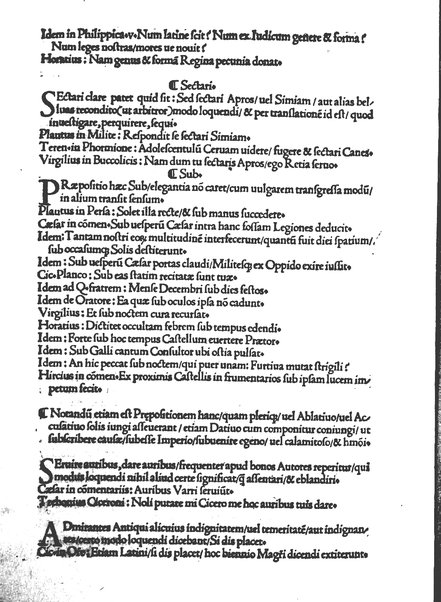 Idem in Philippica•v• Num latine scit? Num ex Iudicum genere & forma?
Num leges nostras/mores ue nouit?
Horatius: Nam genus & formā Regina pecunia donat•
¶ Sectari•
SEctari clare patet quid sit: Sed sectari Apros/uel Simiam/aut alias bel-
luas recondito(ut arbitror)modo loquendi/& per translationē id est/quod
inuestigare, perquirere, sequi•
Plautus in Milite: Respondit se sectari Simiam•
Teren•in Phormione: Adolescentulū Ceruam uidere/fugere & sectari Canes•
Virgilius in Buccolicis: Nam dum tu sectaris Apros/ego Retia seruo•
¶ Sub•
PRæpositio hæc Sub/elegantia nō caret/cum uulgarem transgressa modū/
in alium transit sensum•
Plautus in Persa: Solet illa recte/& sub manus succedere•
Cæsar in cōmen•Sub uesperū Cæsar intra hanc fossam Legiones deducit•
Idem: Tantam nostri eoꝝ multitudinē interfecerunt/quantū fuit diei spatium/
sub occasumꝗ Solis destiterunt•
Idem: Sub uesperū Cæsar portas claudi/Militesꝗ ex Oppido exire iussit•
Cic•Planco: Sub eas statim recitatæ sunt tuæ•
Idem ad Q•fratrem: Mense Decembri sub dies festos•
Idem de Oratore: Ea quæ sub oculos ipsa nō cadunt•
Virgilius: Et sub noctem cura recursat•
Horatius: Dictitet occultam febrem sub tempus edendi•
Idem: Forte sub hoc tempus Castellum euertere Prætor•
Idem: Sub Galli cantum Consultor ubi ostia pulsat•
Idem: An hic peccat sub noctem/qui puer unam: Furtiua mutat strigili?
Hircius in cōmen•Ex proximis Castellis in frumentarios sub ipsam lucem im-
petum fecit•
¶ Notandū etiam est Prępositionem hanc/quam pleriꝗ/uel Ablatiuo/uel Ac-
cusatiuo solis iungi asseuerant/etiam Datiuo cum componitur coniungi/ut
subscribere causæ/subesse Imperio/subuenire egeno/uel calamitoso/& hmōi•
SEruire auribus, dare auribus/frequenter apud bonos Autores reperitur/qui
modus loquendi nihil aliud certe significat/ꝗ̄ assentari/& eblandiri•
Cæsar in cōmentariis: Auribus Varri seruiūt•
Trebonius Ciceroni: Noli putare mi Cicero me hoc auribus tuis dare•
ADmirantes Antiqui alicuius indignitatem/uel temeritatē/aut indignan-
tes/certo modo loquendi dicebant/Si dis placet•
Cic•in Ofe: Etiam Latini/si dis placet/hoc biennio Magr̄i dicendi extiterunt•